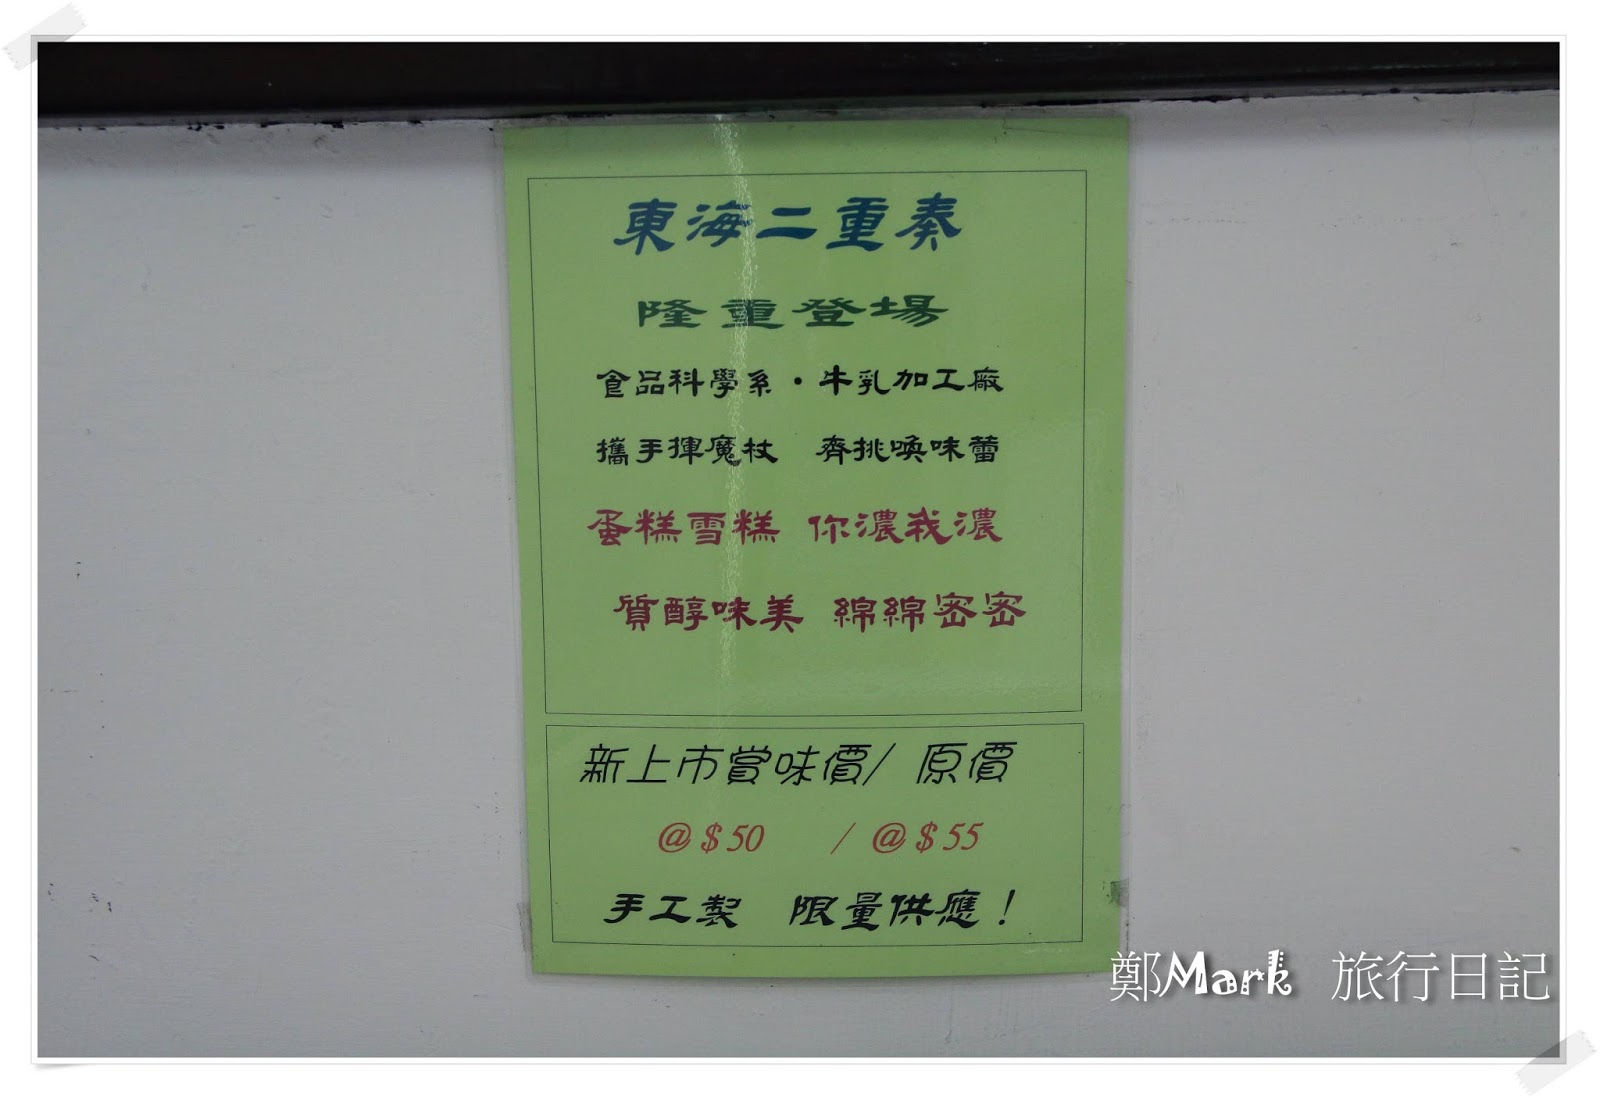 東海二重奏
隆重登場
食品科學系・牛乳加工廠
攜手揮魔杖 齊挑喚味蕾
蛋糕雪糕 你濃我濃
質醇味美 綿綿密密
新上市賞味價/ 原價
@$50 / @$55
手工製 限量供應！
鄭Mark 旅行日記